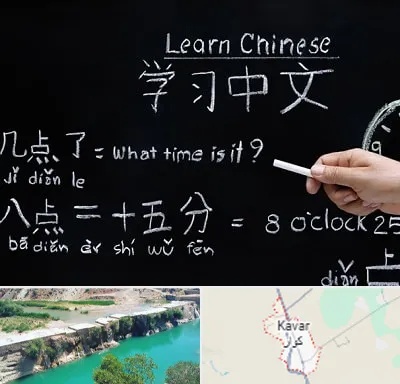 Learn Chinese
学习中文
9
几点了 = What time is it?
Jǐ diǎn le
八点二十五分 = 8 o'clock 25
bā diǎn èr shí wǔ fēn
diǎn
上
Kavar
کوار